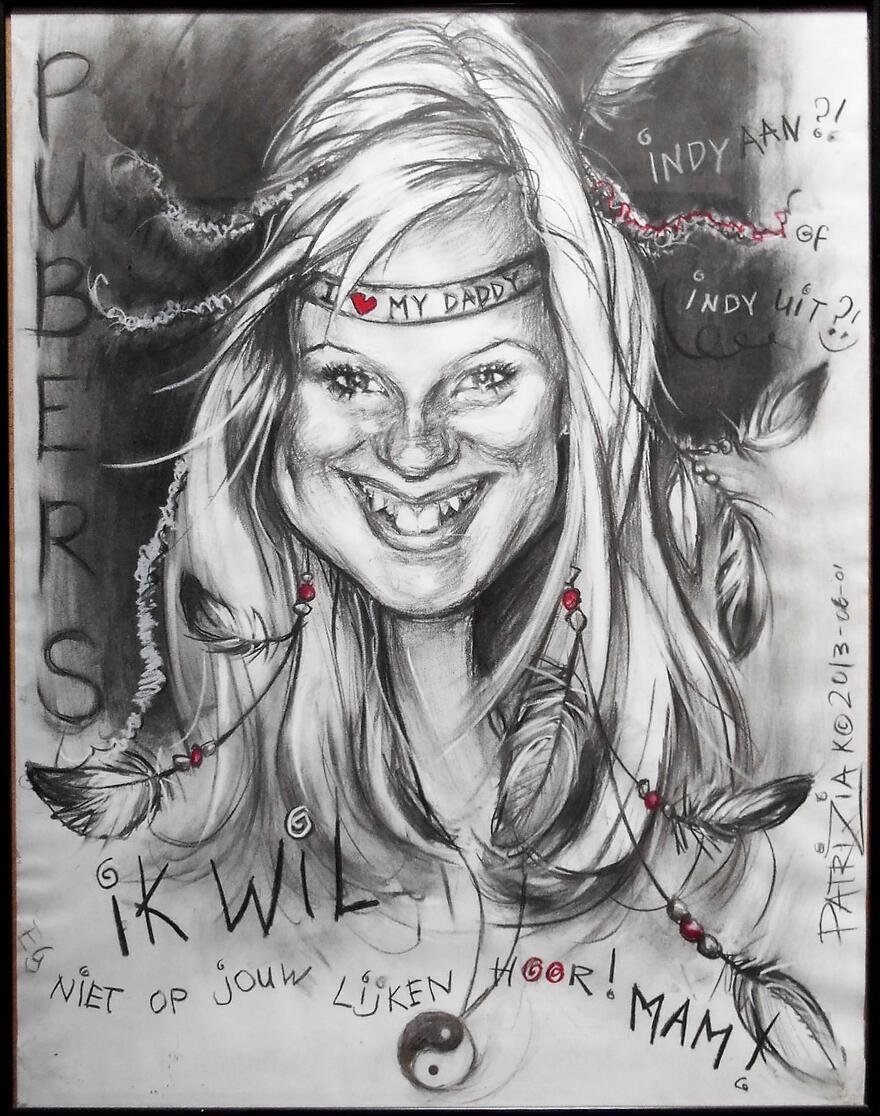 PUBERS
iNDY AAN?!
of
iNDY UiT?!
I ❤ MY DADDY
iK WiL
NiET OP JOUW LiJKEN HOOR!
MAM X
PATRiZiA K © 2013-08-01